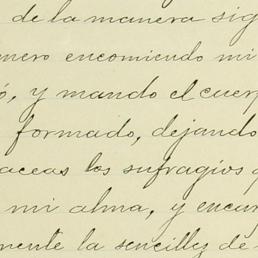 de la manera sig
mero encomiendo mi
ó, y mando el cuerp
formado, dejando
aceas los sufragios q
mi alma, y encar
mente la sencillez de